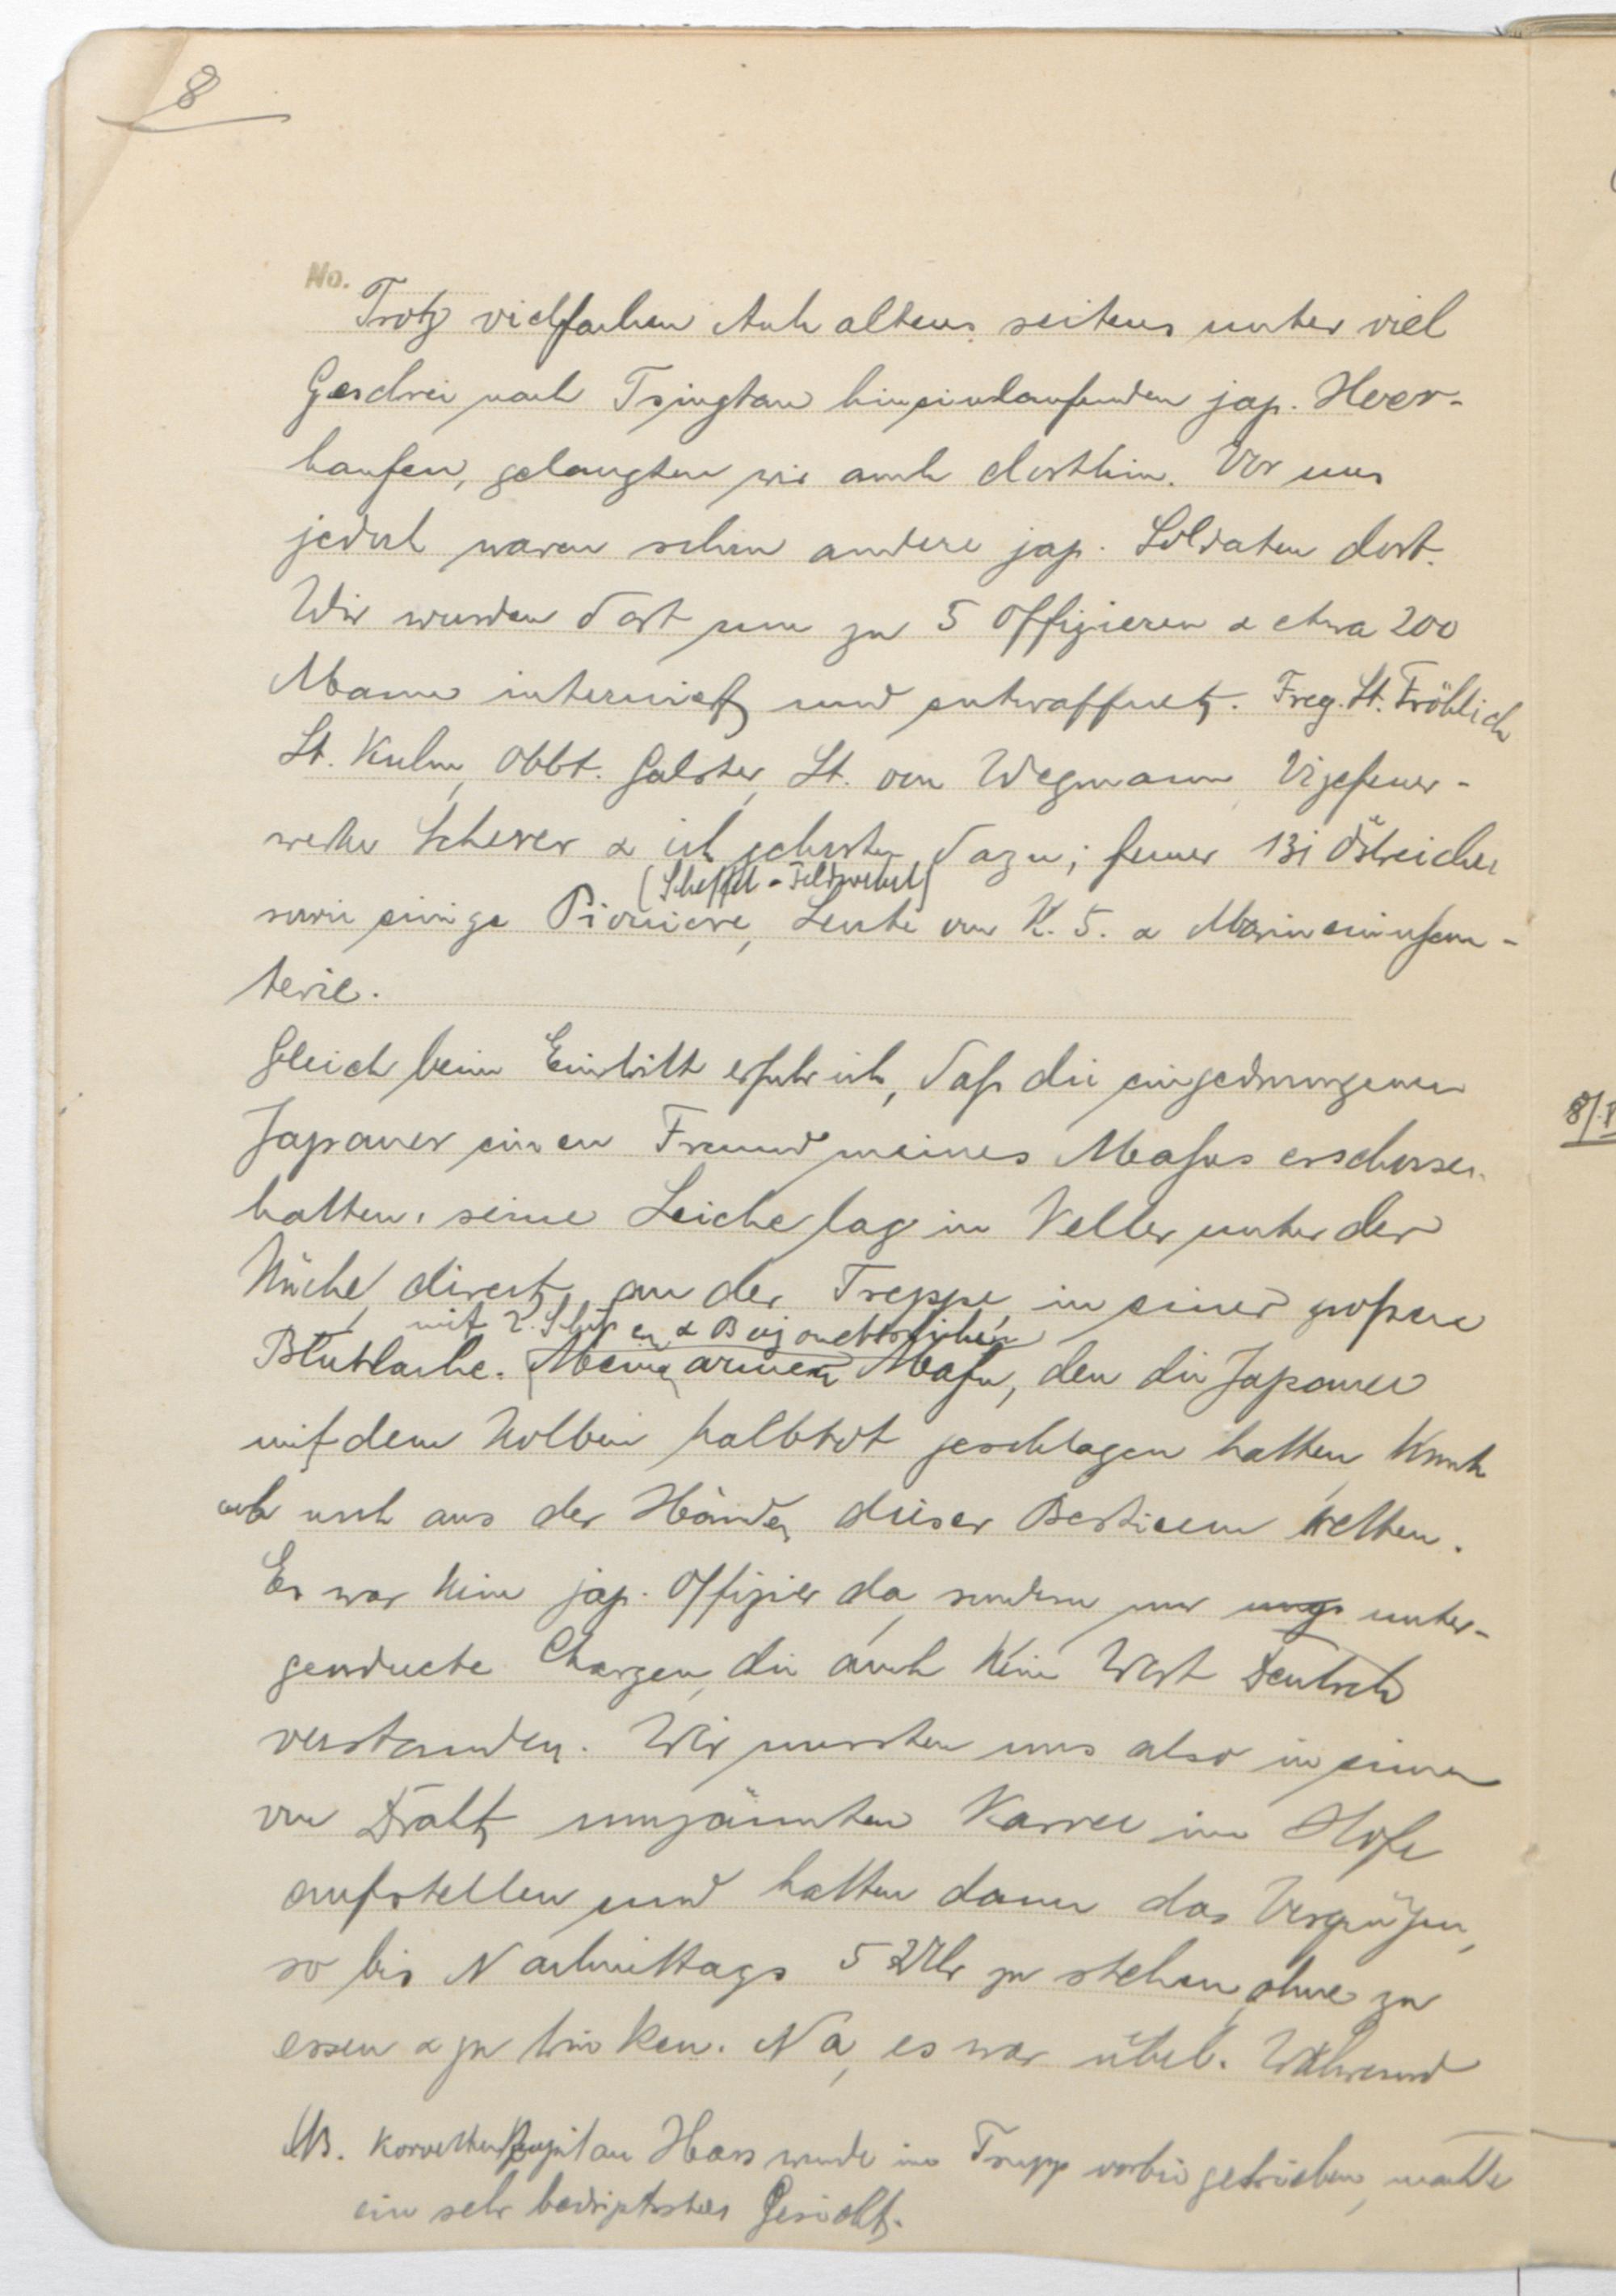 8
No.
Trotz vielfachen Anhaltens seitens unter viel
Geschrei nach Tsingtau hineinlaufenden jap. Heer-
haufen, gelangten wir auch dorthin. Vor uns
jedoch waren schon andere jap. Soldaten dort.
Wir wurden dort nun zu 5 Offizieren & etwa 200
Mann interniert und entwaffnet. Freg. Lt. Fröhlich
Lt. Kuhn, Oblt. Galster, Lt. von Wegmann, Vizefeuer-
werker Scherer & ich gehörten dazu; ferner 131 Östreicher
(Scheffel - Feldwebel)
sowie einige Pioniere, Leute von K. 5. & Marineinfan-
terie.
Gleich beim Eintritt erfuhr ich, daß die eingedrungenen
Japaner einen Freund meines Mafus erschossen
hatten, seine Leiche lag im Keller unter der
Küche, direct an der Treppe in einer großen
mit 2 Schüßen & Bajonettstichen
Blutlache. Meinen armen Mafu, den die Japaner
mit dem Kolben halbtot geschlagen hatten, konnte
ich noch aus der Händen dieser Bestieen retten.
Es war kein jap. Offizier da, sondern nur ungs unter-
geordnete Chargen, die auch kein Wort Deutsch
verstanden. Wir mussten uns also in einem
von Draht umzäunten Karree im Hofe
aufstellen und hatten dann das Vergnügen,
so bis Nachmittags 5 Uhr zu stehen, ohne zu
essen & zu trinken. Na, es war übel. Während
NB. Korvettenkapitän Hass wurde im Trupp vorbei getrieben, machte
ein sehr bedripstes Gesicht.